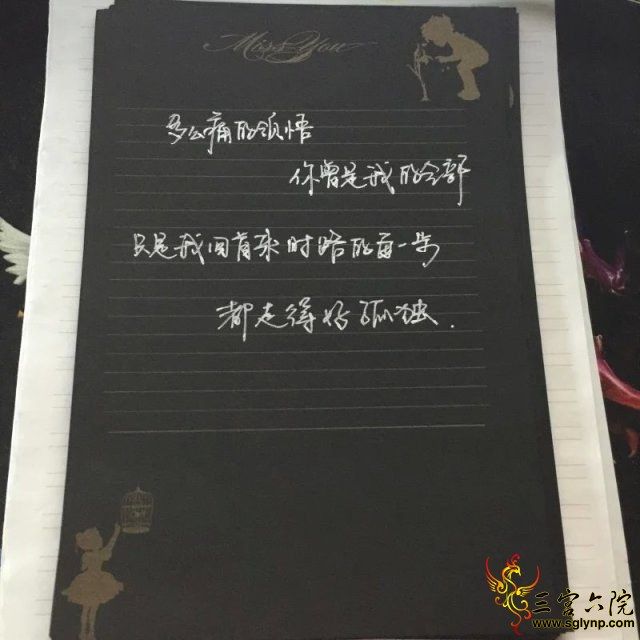 Miss You
多么痛的领悟
你曾是我的全部
只是我回首来时路的每一步
都走得好孤独.
三宫六院
www.sglynp.com